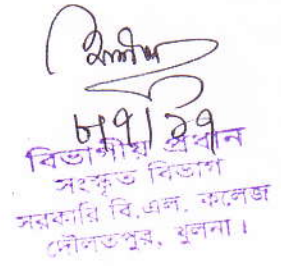 ৮/৭/১৭
বিভাগীয় প্রধান
সংস্কৃত বিভাগ
সরকারি বি.এল. কলেজ
দৌলতপুর, খুলনা।